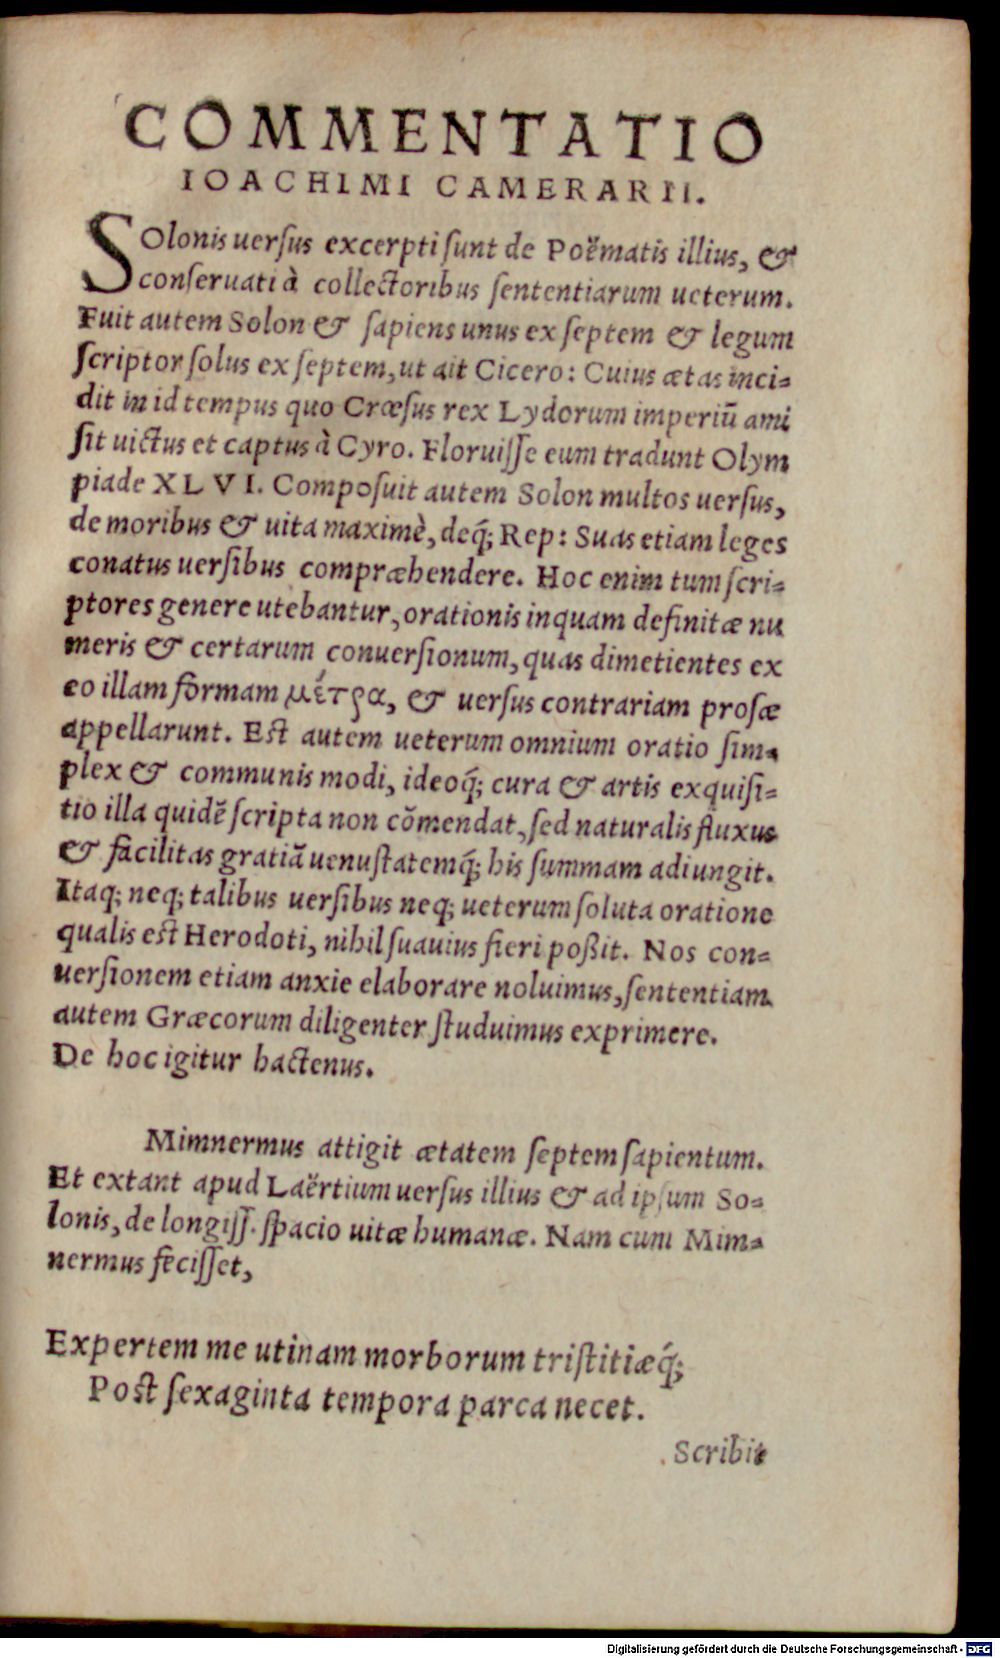 COMMENTATIO
IOACHIMI CAMERARII.
SOlonis uersus excerpti sunt de Poëmatis illius, &
conseruati à collectoribus sententiarum ueterum.
Fuit autem Solon & sapiens unus ex septem & legum
scriptor solus ex septem, ut ait Cicero: Cuius ætas inci-
dit in id tempus quo Cræsus rex Lydorum imperiũ ami
sit uictus et captus à Cyro. Floruisse eum tradunt Olym
piade XLVI. Composuit autem Solon multos uersus,
de moribus & uita maximè, deq́; Rep: Suas etiam leges
conatus uersibus compræhendere. Hoc enim tum scri-
ptores genere utebantur, orationis inquam definitæ nu
meris & certarum conuersionum, quas dimetientes ex
eo illam formam μέτρα, & uersus contrariam prosæ
appellarunt. Est autem ueterum omnium oratio sim-
plex & communis modi, ideoq́; cura & artis exquisi-
tio illa quidẽ scripta non cõmendat, sed naturalis fluxus
& facilitas gratiã uenustatemq́; his summam adiungit.
Itaq; neq; talibus uersibus neq; ueterum soluta oratione
qualis est Herodoti, nihil suauius fieri poßit. Nos con-
uersionem etiam anxie elaborare noluimus, sententiam
autem Græcorum diligenter studuimus exprimere.
De hoc igitur hactenus.
Mimnermus attigit ætatem septem sapientum.
Et extant apud Laërtium uersus illius & ad ipsum So-
lonis, de longiss. spacio uitæ humanæ. Nam cum Mim-
nermus fecisset,
Expertem me utinam morborum tristitiæq́;
Post sexaginta tempora parca necet.
Scribit
Digitalisierung gefördert durch die Deutsche Forschungsgemeinschaft - DFG